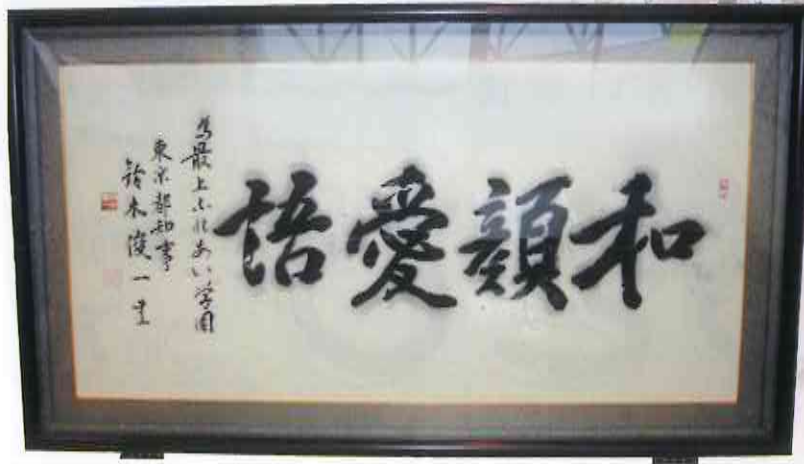 和顔愛語
為最上ふれあい学園
東京都知事
鈴木俊一書